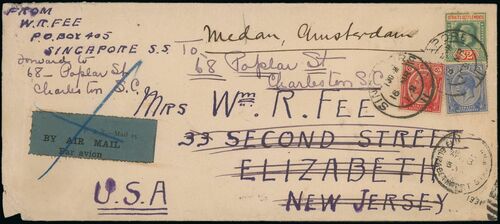 FROM
W.R.FEE
P.O.BOX 405
SINGAPORE S.S
Forward to
68 - Poplar St
Charleston S.C.
Medan, Amsterdam
To
68 Poplar St
Charleston S.C.
Mrs Wm. R. FEE
33 SECOND STREET
ELIZABETH
NEW JERSEY
U.S.A
BY AIR MAIL
Par avion
STRAITS SETTLEMENTS
$2